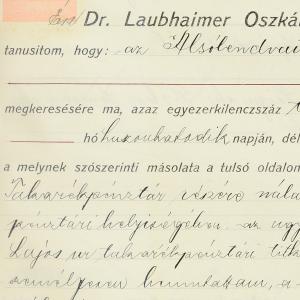 Én Dr. Laubhaimer Oszká
tanusitom, hogy: az Alsólendvai
megkeresésére ma, azaz egyezerkilenczszáz
hó huszonhatodik napján, dél
a melynek szószerinti másolata a tulsó oldalon
Takarékpénztár részére
pénztári helyiségében az ügy
Lajos ur takarékpénztári titk
személyesen bemutattam, a